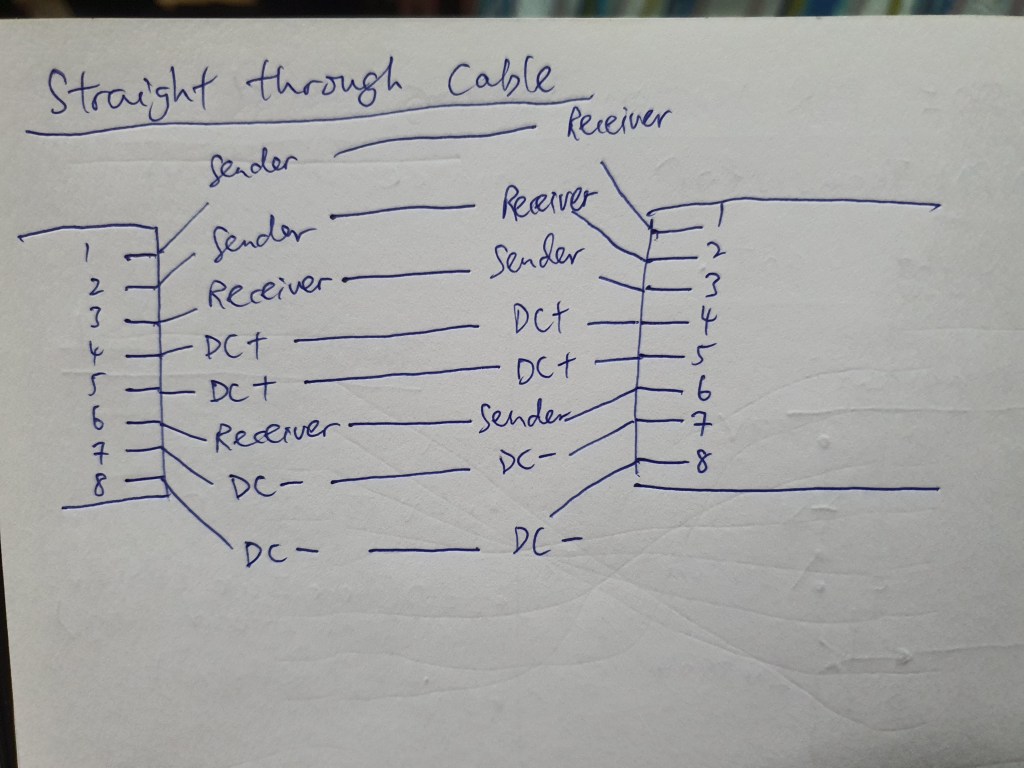 Straight through Cable
Sender Receiver
1 Sender Receiver 1
2 Receiver Sender 2
3 DC+ DC+ 3
4 DC+ DC+ 4
5 Receiver Sender 5
6 DC- DC- 6
7 DC- DC- 7
8 8